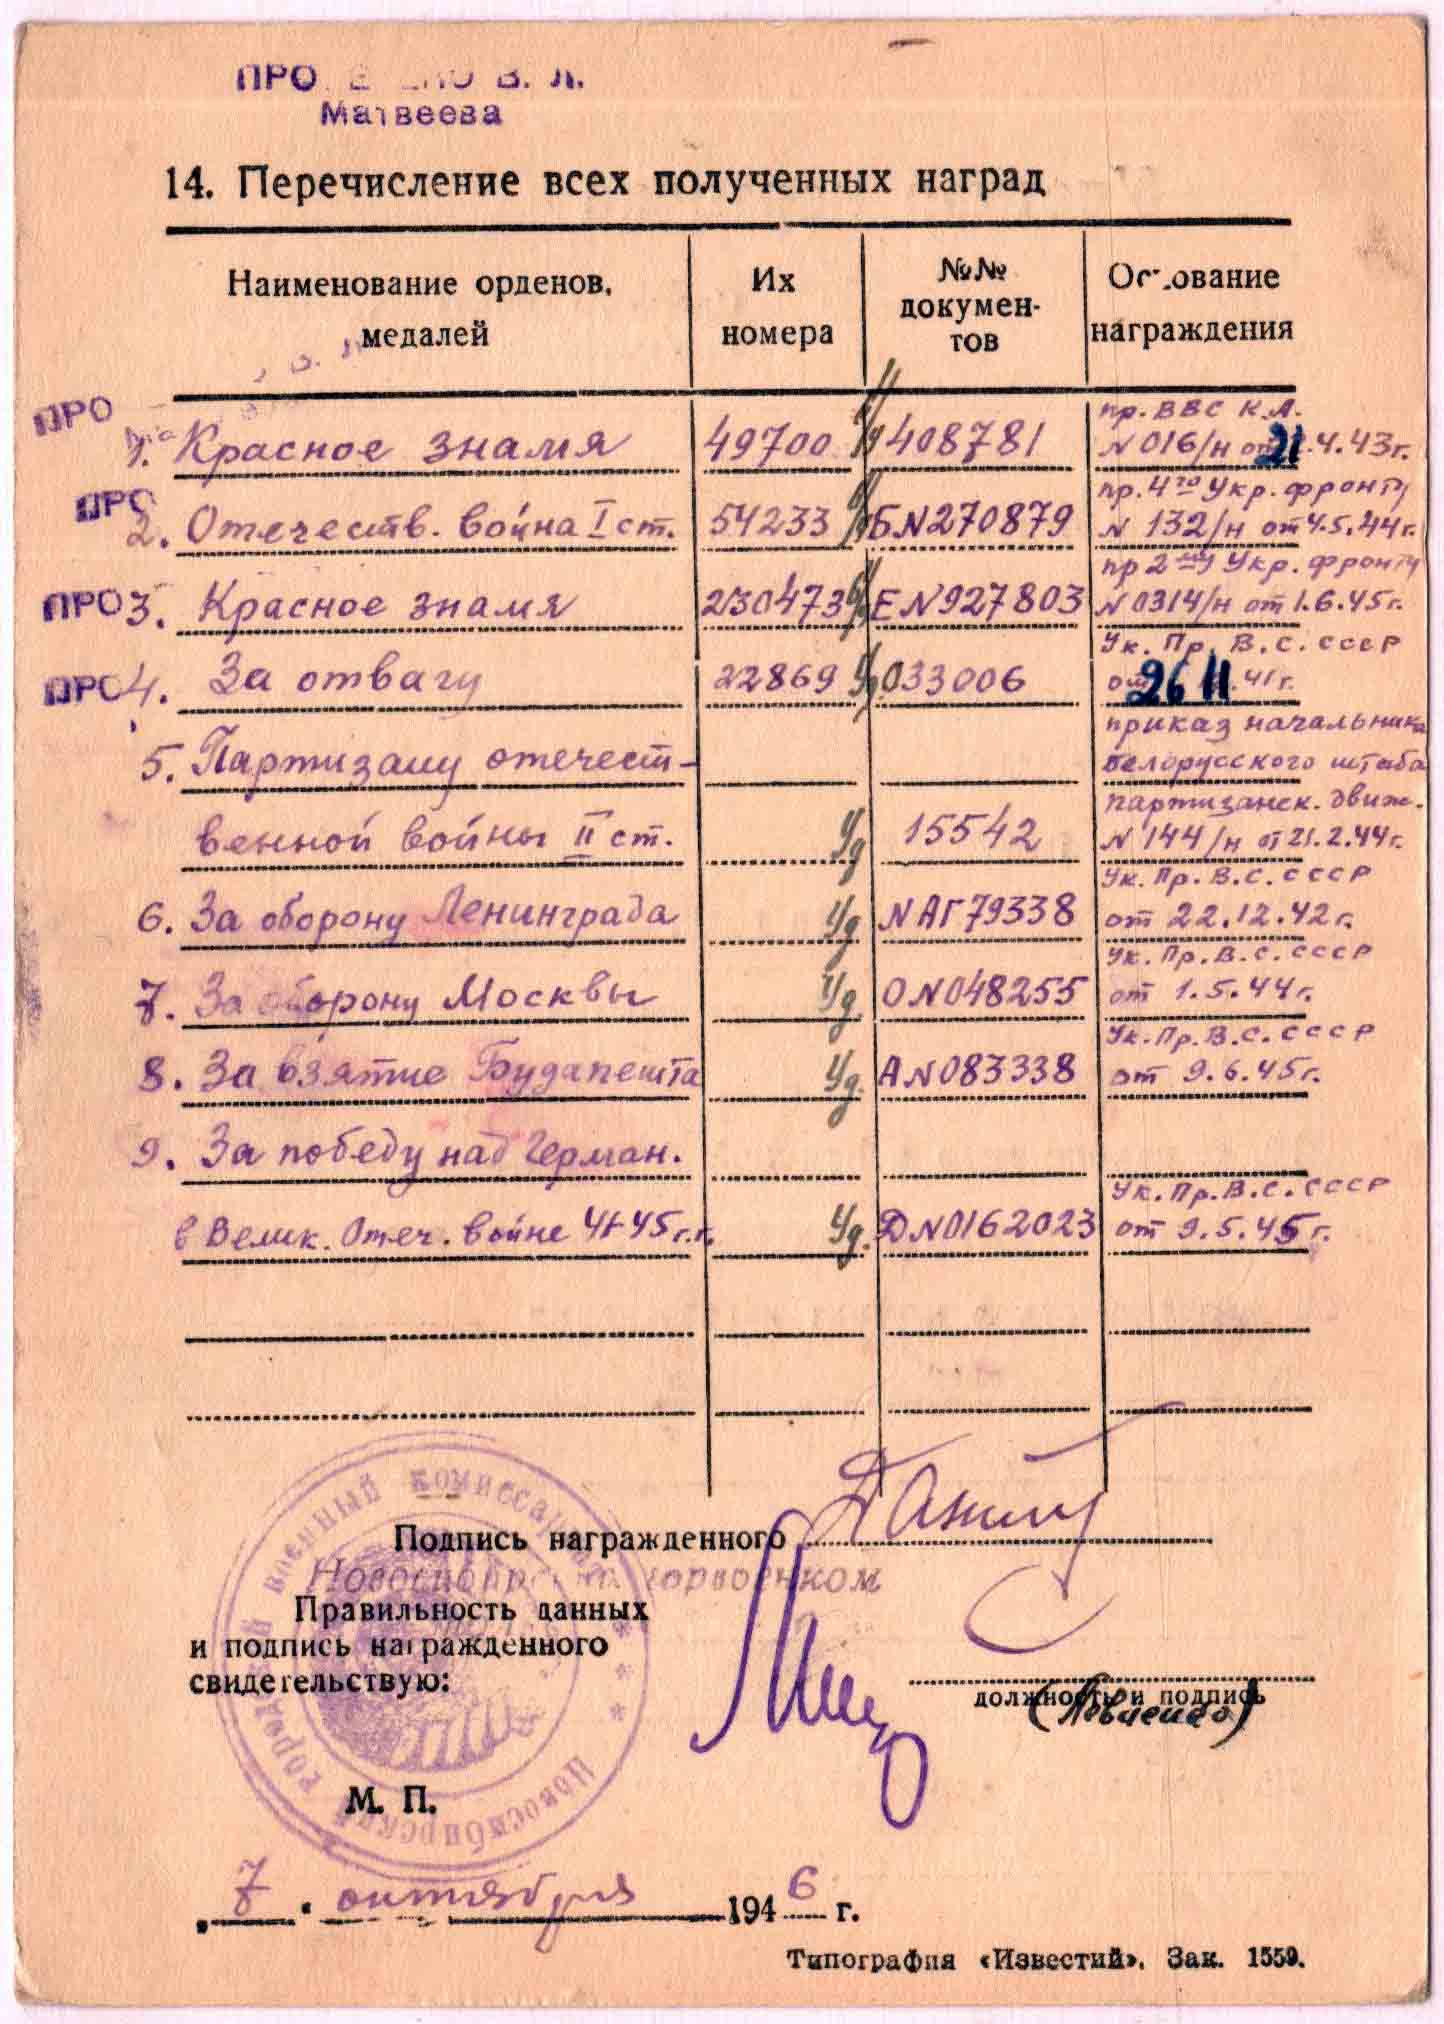 В. Л.
Матвеева
14. Перечисление всех полученных наград
Наименование орденов, медалей
Их номера
№№ документов
награждения
ПРО
1. Красное знамя 49700 408781 пр. ВВС К.А. N 016/н от 21.4.43г.
ПРО
2. Отечеств. война I ст. 54233 БN270879 пр. 4го Укр. фронту N 132/н от 4.5.44г.
ПРО 3. Красное знамя 230473 ЕN927803 пр 2му Укр. фронту N0314/н от 1.6.45г.
ПРО 4. За отвагу 22869 Уд. 033006 Ук. Пр. В.С. СССР от 26 11.41г.
5. Партизану отечест- приказ начальника белорусского штаба
венной войны II ст. Уд 15542 партизанск. движ. N 144/н от 21.2.44г.
6. За оборону Ленинграда Уд NАГ79338 Ук. Пр. В.С. СССР от 22.12.42г.
7. За оборону Москвы Уд. ОN048255 Ук. Пр. В.С. СССР от 1.5.44г.
8. За взятие Будапешта Уд. АN083338 Ук. Пр. В.С. СССР от 9.6.45г.
9. За победу над Герман.
в Велик. Отеч. войне 41-45г.г. Уд. DN0162023 Ук. Пр. В.С. СССР от 9.5.45г.
Подпись награжденного
горвоенком
Правильность данных
и подпись награжденного
свидетельствую:
должность и подпись
(Левченко)
городской военный комиссариат
Новосибирский
М. П.
„7" октября 1946 г.
Типография «Известий». Зак. 1559.